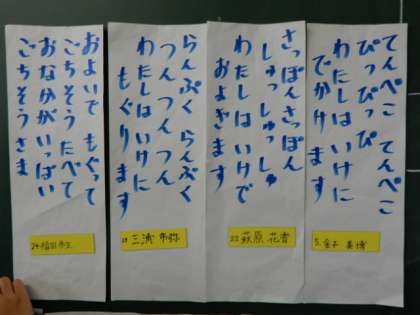 てんぺこ てんぺこ
ぴっぴっぴ
わたしはいけに
でかけます
5. 金子 美博
さっぽんさっぽん
しゅっ しゅっ しゅ
わたしはいけで
およぎます
22. 萩原 花香
らんぷく らんぷく
つんつんつん
わたしはいけに
もぐります
三浦 市弥
およいで もぐって
ごちそう たべて
おなかがいっぱい
ごちそうさま
24. 福田